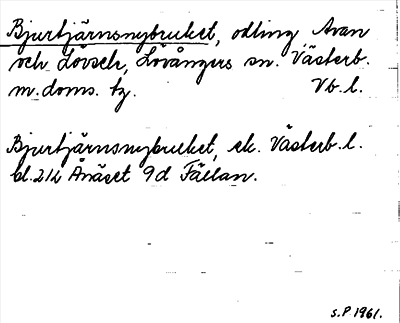 Bjurtjärnsnybruket, odling Avan
och Lövsele, Lövångers sn. Västerb.
m. doms. tg. Vb. l.
Bjurtjärnsnybruket, ek. Västerb. l.
bl. 212 Ånäset 9d Fällan.
S.P 1961.